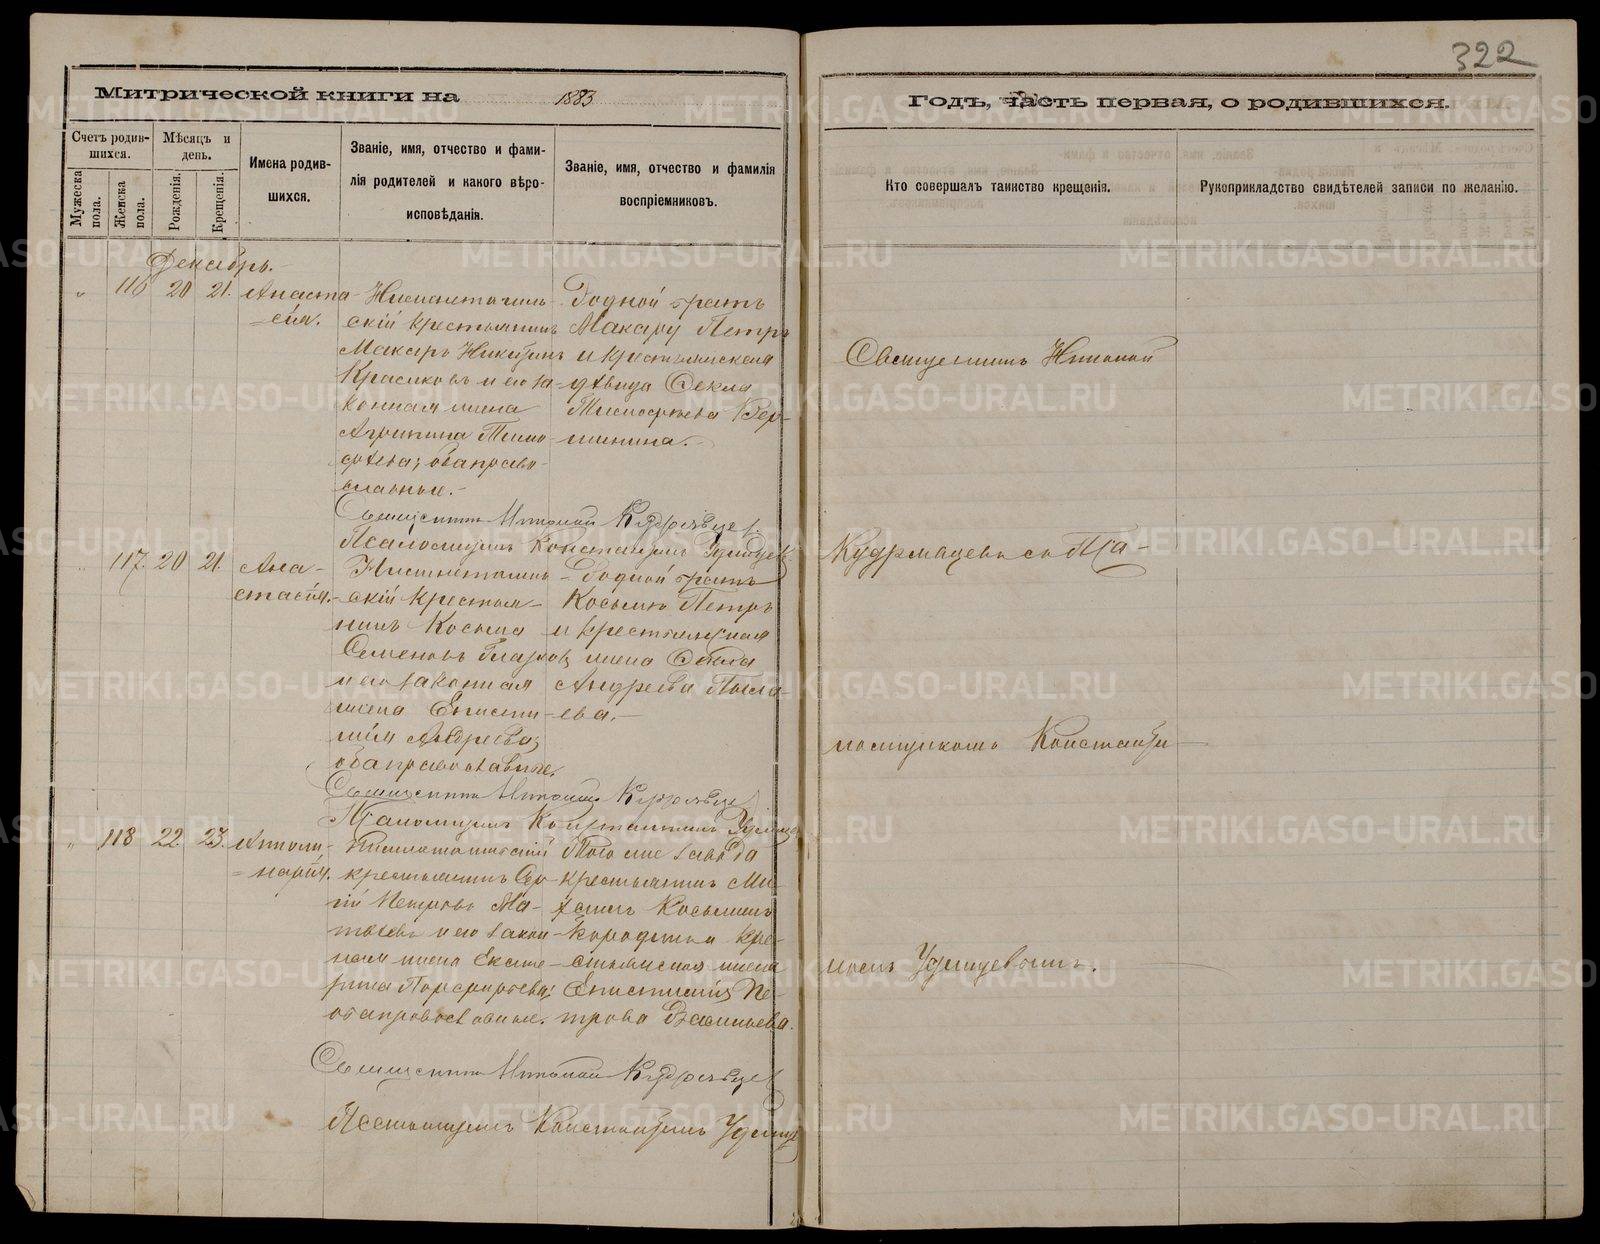 322
Митрической книги на 1883
Годъ, часть первая, о родившихся.
Счетъ родив-
шихся.
Мужеска пола.
Женска пола.
Мѣсяцъ и
день.
Рожденія.
Крещенія.
Имена родив-
шихся.
Званіе, имя, отчество и фами-
лія родителей и какого вѣро-
исповѣданія.
Званіе, имя, отчество и фамилія
воспріемниковъ.
Кто совершалъ таинство крещенія.
Рукоприкладство свидѣтелей записи по желанію.
Декабрь.
" 116 20 21. Анаста-
сія.
Нижнетагиль-
скій крестьянинъ
Макаръ Никитинъ
Красиковъ и его за-
конная жена
Агрипина Тимо-
фѣева; оба право-
славные.
Родной братъ
Макару Петръ
и крестьянская
дѣвица Фекла
Тимофѣева Вер-
шинина.
Священникъ Николай
Священникъ Николай Кудрявцев
Псаломщикъ Константинъ Удинцев
" 117. 20 21. Ана-
стасія.
Нижнетагиль-
скій крестья-
нинъ Косьма
Семеновъ
и его законная
жена Еписти-
мія Андреева;
оба православные.
Родной братъ
Косьмы Петръ
и крестьянская
жена
Андреева
Кудрявцевъ съ Пса-
Священникъ Николай Кудрявцев
Псаломщикъ Константинъ Удинцев
ломщикомъ Константи-
" 118 22. 23. Аполи-
нарія.
Нижнетагильскій
крестьянинъ
Петровъ Ма-
и его закон-
ная жена Екате-
рина Порфирьева;
оба православные.
Того же завода
крестьянинъ Ми-
хаилъ Косьминъ
Бородинъ и кре-
стьянская жена
Епистимія Пе-
трова Васильева.
номъ Удинцевымъ.
Священникъ Николай Кудрявцев
Псаломщикъ Константинъ Удинцев
METRIKI.GASO-URAL.RU